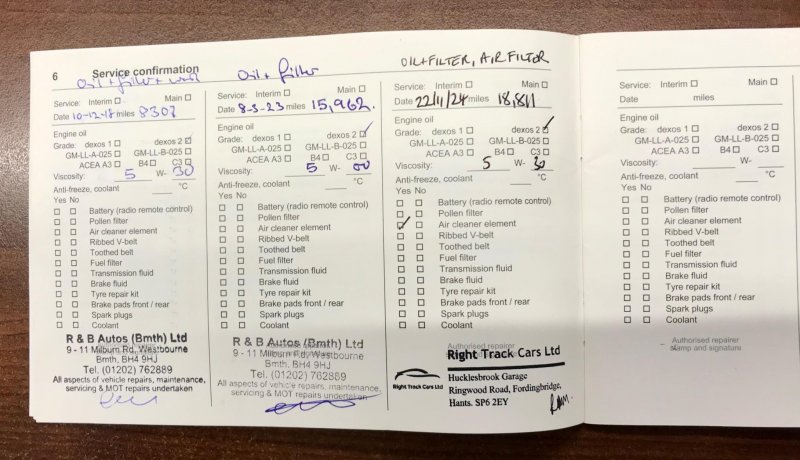 6 Service confirmation
Oil + filter +
Service: Interim Main
Date 10-12-18 miles 8307
Engine oil
Grade: dexos 1 dexos 2
GM-LL-A-025 GM-LL-B-025
ACEA A3 B4 C3
Viscosity: 5 W- 30
Anti-freeze, coolant °C
Yes No
Battery (radio remote control)
Pollen filter
Air cleaner element
Ribbed V-belt
Toothed belt
Fuel filter
Transmission fluid
Brake fluid
Tyre repair kit
Brake pads front / rear
Spark plugs
Coolant
R & B Autos (Bmth) Ltd
9 - 11 Milburn Rd, Westbourne
Bmth, BH4 9HJ
Tel. (01202) 762889
All aspects of vehicle repairs, maintenance,
servicing & MOT repairs undertaken
Oil + filter
Service: Interim Main
Date 8-3-23 miles 15,962.
Engine oil
Grade: dexos 1 dexos 2
GM-LL-A-025 GM-LL-B-025
ACEA A3 B4 C3
Viscosity: 5 W-
Anti-freeze, coolant °C
Yes No
Battery (radio remote control)
Pollen filter
Air cleaner element
Ribbed V-belt
Toothed belt
Fuel filter
Transmission fluid
Brake fluid
Tyre repair kit
Brake pads front / rear
Spark plugs
Coolant
R & B Autos (Bmth) Ltd
9 - 11 Milburn Rd, Westbourne
Bmth, BH4 9HJ
Tel. (01202) 762889
All aspects of vehicle repairs, maintenance,
servicing & MOT repairs undertaken
OIL+FILTER, AIR FILTER
Service: Interim Main
Date 22/11/24 miles 18,811
Engine oil
Grade: dexos 1 dexos 2
GM-LL-A-025 GM-LL-B-025
ACEA A3 B4 C3
Viscosity: 5 W- 30
Anti-freeze, coolant °C
Yes No
Battery (radio remote control)
Pollen filter
Air cleaner element
Ribbed V-belt
Toothed belt
Fuel filter
Transmission fluid
Brake fluid
Tyre repair kit
Brake pads front / rear
Spark plugs
Coolant
Authorised repairer
Right Track Cars Ltd
Right Track Cars Ltd
Hucklesbrook Garage
Ringwood Road, Fordingbridge,
Hants. SP6 2EY
Service: Interim Main
Date miles
Engine oil
Grade: dexos 1 dexos 2
GM-LL-A-025 GM-LL-B-025
ACEA A3 B4 C3
Viscosity: W-
Anti-freeze, coolant °C
Yes No
Battery (radio remote control)
Pollen filter
Air cleaner element
Ribbed V-belt
Toothed belt
Fuel filter
Transmission fluid
Brake fluid
Tyre repair kit
Brake pads front / rear
Spark plugs
Coolant
Authorised repairer
stamp and signature